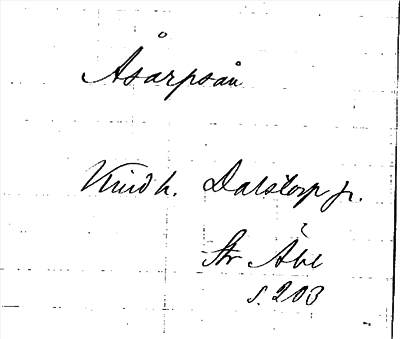 Åsarpsån
Kind h. Dalstorp jr.
Str Åbl
s. 203